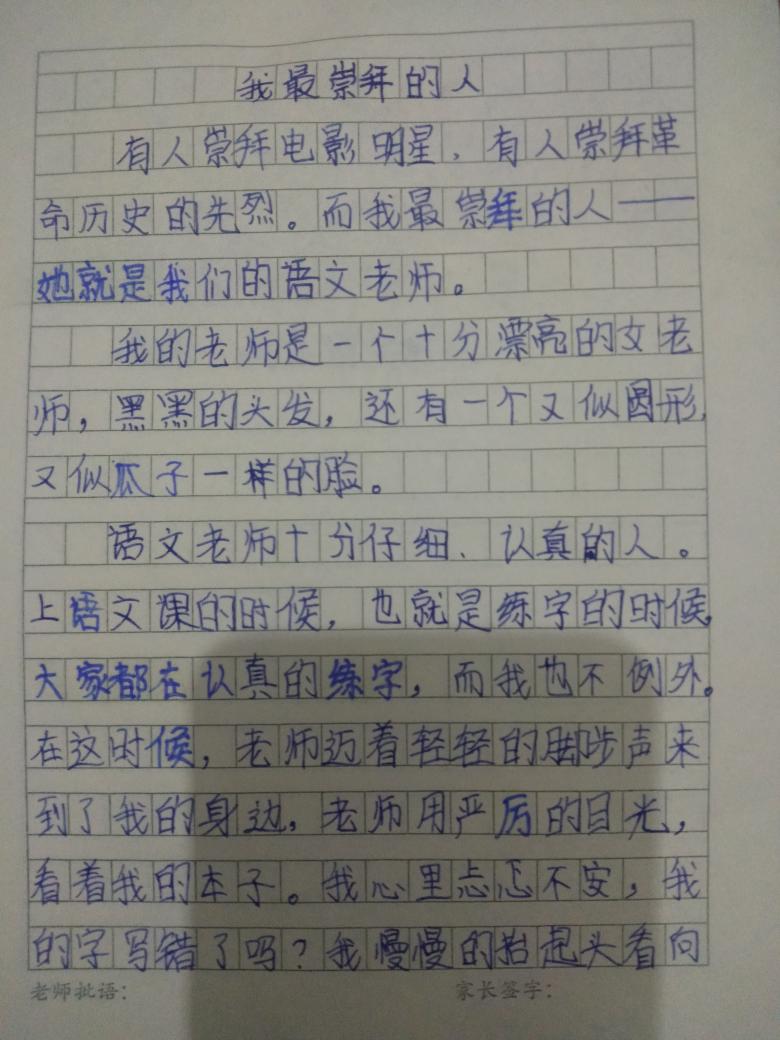 我最崇拜的人
有人崇拜电影明星，有人崇拜革
命历史的先烈。而我最崇拜的人——
她就是我们的语文老师。
我的老师是一个十分漂亮的女老
师，黑黑的头发，还有一个又似圆形，
又似瓜子一样的脸。
语文老师十分仔细、认真的人。
上语文课的时候，也就是练字的时候，
大家都在认真的练字，而我也不例外。
在这时候，老师迈着轻轻的脚步声来
到了我的身边，老师用严厉的目光，
看着我的本子。我心里忐忑不安，我
的字写错了吗？我慢慢的抬起头看向
老师批语：
家长签字：